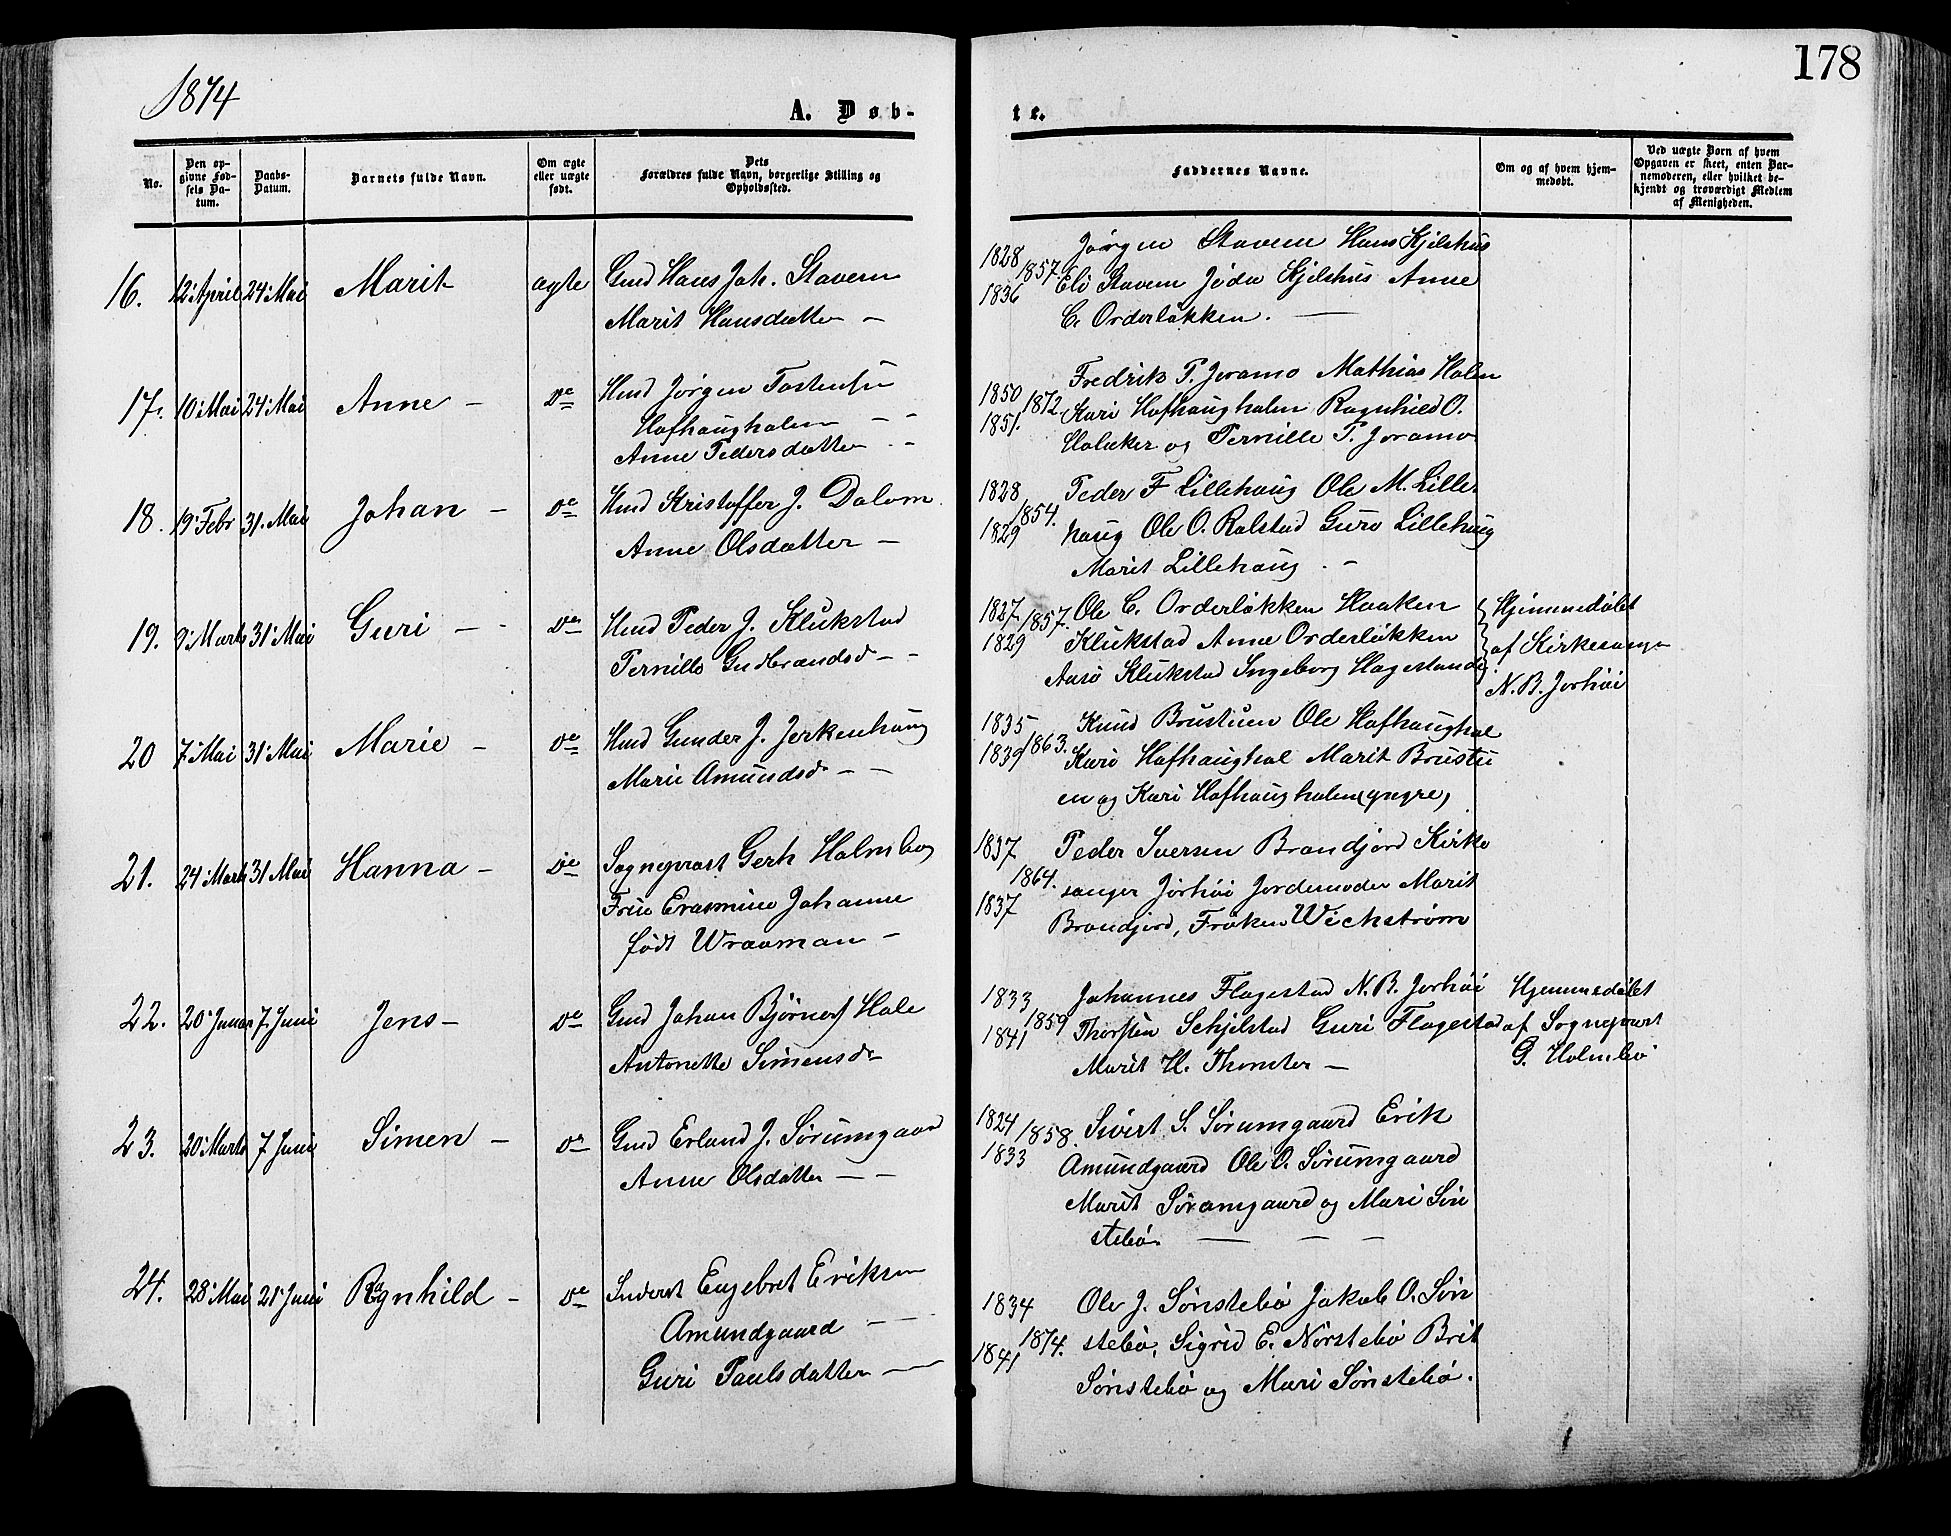 178
1874
A. Døb-
te.
No.
Den op-
givne Fød-
sels Da-
tum.
Daabs-
Datum.
Barnets fulde Navn.
Om ægte
eller uægte
født.
Dets
Forældres fulde Navn, borgerlige Stilling og
Opholdssted.
Faddernes Navne.
Om og af hvem hjem-
medøbt.
Ved uægte Børn af hvem
Opgaven er skeet, enten Bar-
nemoderen, eller hvilket be-
kjendt og troværdigt Medlem
af Menigheden.
16. 12' April 24' Mai Marit ægte
Gmd Hans Joh. Stavem
Marit Hansdatter —
1828
1836
1857
Jørgen Stavem Hans Kjelshus
Eli Stavem Jøda Kjelshus Anne
C. Orderløkken. —
17. 10' Mai 24' Mai Anne — do
Hmd Jørgen Tostensen
Hofhaughalen —
Anne Pedersdatter —
1850
1851.
1872.
Fredrik P. Joramo Mathias Halen
Kari Hofhaughalen Ragnhild O.
Holaker og Pernille P. Joramo
18. 19' Febr 31. Mai Johan — do
Hmd Kristoffer J. Dalom
Anne Olsdatter —
1828
1829
1854.
Peder F Lillehaug Ole M. Lille-
haug Ole O. Ralstad Guro Lillehaug
Marit Lillehaug . —
19. 9' Marts 31' Mai Guri — do
Hmd Peder J. Klukstad
Pernille Gudbrandsd — -
1827
1829
1857.
Ole C. Orderløkken Haaken
Klukstad Anne Orderløkken
Aase Klukstad Ingeborg Hagestande
Hjemmedøbt
af Kirkesanger
N. B. Jorhøi
20 7' Mai 31' Mai Marie — do
Hmd Gunder J. Jerkenhaug
Marie Amundsd — —
1835
1839
1863.
Knud Brustuen Ole Hofhaughal
Kari Hofhaughal Marit Brustu
en og Kari Hofhaughalen (yngre)
21. 24' Marts 31' Mai Hanna — do
Sogneprest Gerh Holmboe
Frue Erasmine Johanne
født Wraaman —
1837
1837
1864.
Peder Iversen Brandjord Kirke
sanger Jorhøi Jordemoder Marit
Brandjord, Frøken Wichstrøm
22. 20' Januar 7. Juni Jens — do
Gmd Johan Bjørner Hole
Antonette Simensdr
1833
1841
1859
Johannes Flagestad N. B. Jorhøi
Thorsten Schjelstad Guri Flagestad
Marit H. Thomter —
Hjemmedøbt
af Sogneprest
G. Holmboe
23. 20' Marts 7' Juni Simen — do
Gmd Erland J. Sørumgaard
Anne Olsdatter — —
1824
1833
1858.
Sivert S. Sørumgaard Erik
Amundgaard Ole O. Sørumgaard
Marit Sørumgaard og Mari Søn
stebø. — — —
24. 28' Mai 21' Juni Ragnhild — do
Inderst Engebret Eriksen
Amundgaard —
Guri Paulsdatter —
1834
1841
1874.
Ole J. Sønstebø Jakob O. Søn
stebø, Sigrid E. Nørstebø Brit
Sønstebø og Mari Sønstebø.